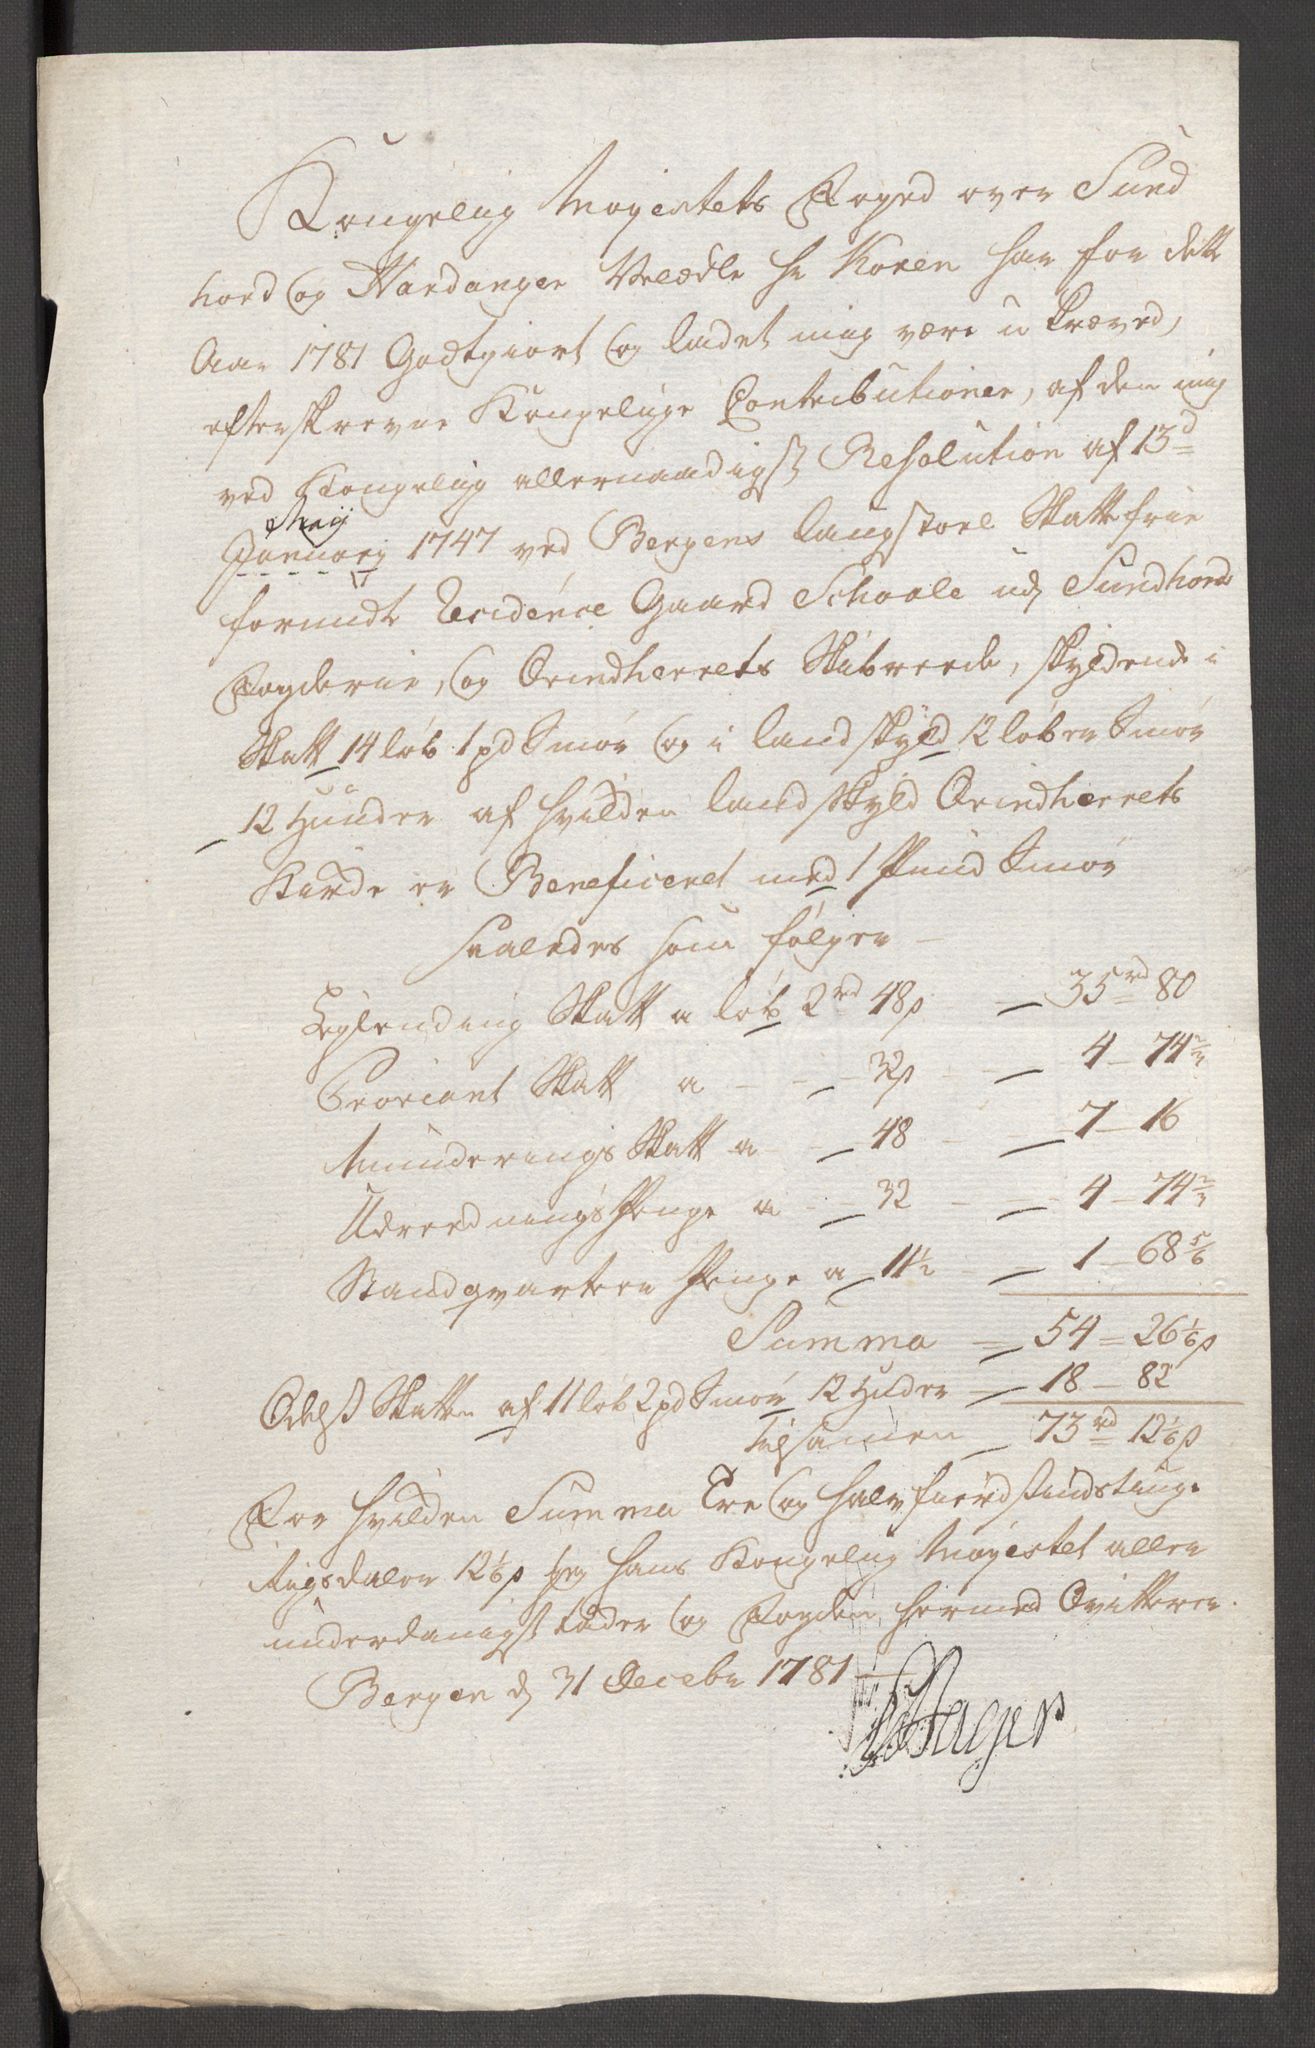 Kongelig Mayestets Foged over Sund
hord og Hardanger Velædle Hr Koren har for dette
Aar 1781 Godtgiort og ladet mig være u kræved,
efterskrevne Kongelige Contributioner, af den mig
ved Kongelig allernaadigst Resolution af 13d
Maij
January 1747 ved Bergens Laugstoel Skatte frie
forundte Residence Gaard Schaale udj Sundhord
Fogderie, og Qvindherrets Skibrede, skyldende i
Skatt 14 løb 1 pd Smør og i Landskyld 12 løber Smør
12 Huuder af hvilken Landskyld Qvindherrets
Kirke er Beneficeret med 1 Pund Smør
Saaledes som følger
Leylending Skatt a løb 2rd 48s 35rd 80
Proviant Skatt a 32s 4 - 74 2/3
Munderings Skatt a 48 7 - 16
Udrednings Penge a 32 4 - 74 2/3
Standqvarteer Penge a 11 1/2 1 - 68 5/6
Summa 54 - 26 1/6 s
Odelss Skatten af 11 løb 2 pd Smør 12 Huder 18 - 82
Tilsamen 73rd 12 1/6 s
For hvilken Summa Tre og halvfierdsindstiuge
Rigsdaler 12 1/6 s jeg hans Kongelig Mayestet aller
underdanigst takker og Fogden hermed Qvitterer.
Bergen d 31 Decebr 1781
Hagerup